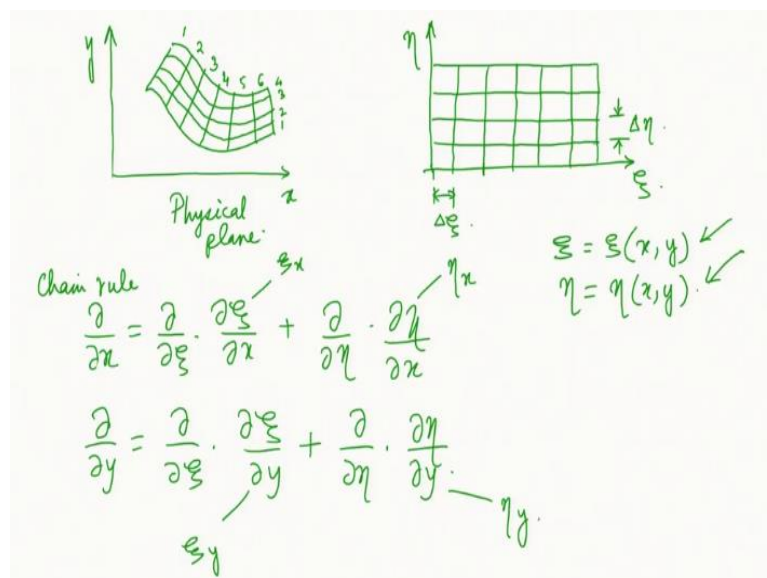 y
1 2 3 4 5 6 4
3
2
1
x
Physical
plane.
η
Δη.
ξ.
Δξ.
ξ = ξ(x, y)
η = η(x,y).
Chain rule
∂/∂x = ∂/∂ξ · ∂ξ/∂x + ∂/∂η · ∂η/∂x
ξx
ηx
∂/∂y = ∂/∂ξ · ∂ξ/∂y + ∂/∂η · ∂η/∂y.
ξy
ηy.